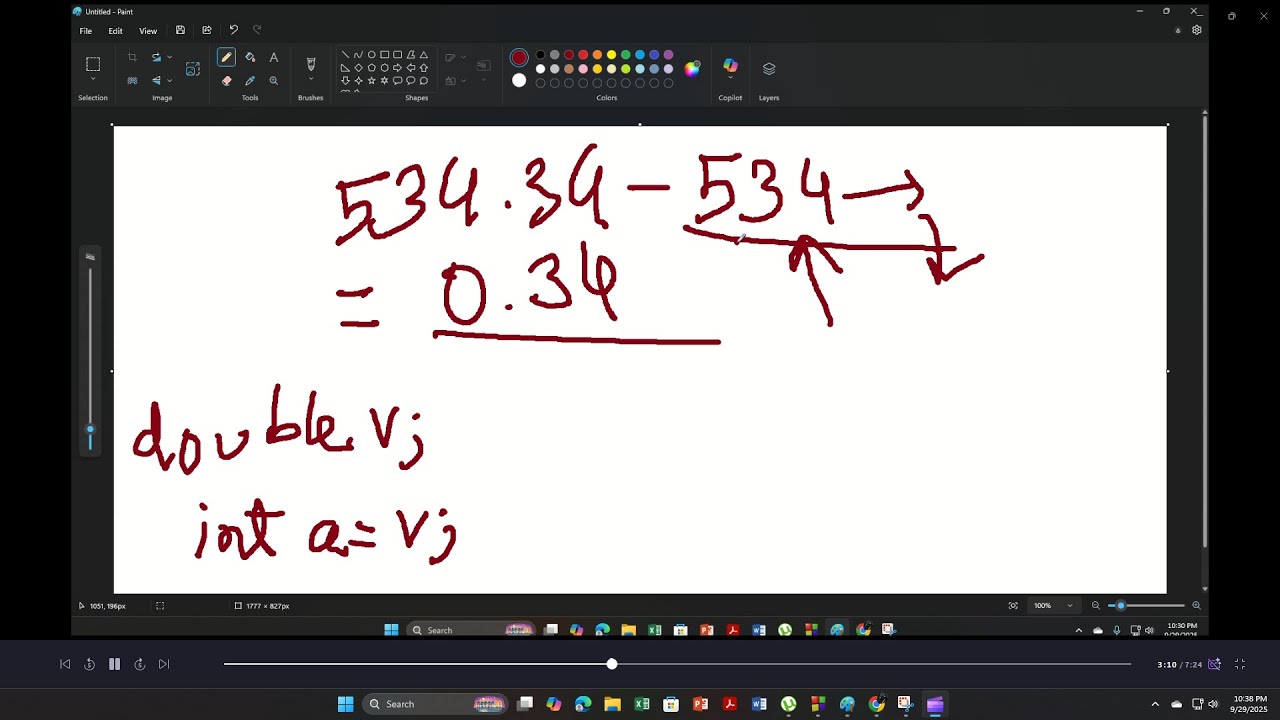 Untitled - Paint
File Edit View
Selection Image Tools Brushes Shapes Colors Copilot Layers
534.34 - 534 →
= 0.34
double v;
int a = v;
1051, 196px 1777 × 827px 100%
Search 10:30 PM
9/29/2025
3:10 / 7:24
Search 10:38 PM
9/29/2025